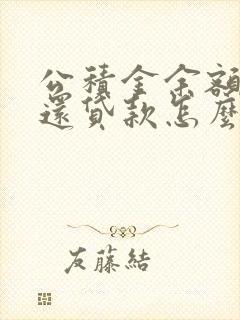 公積金余額
還貸款怎麼
友藤結